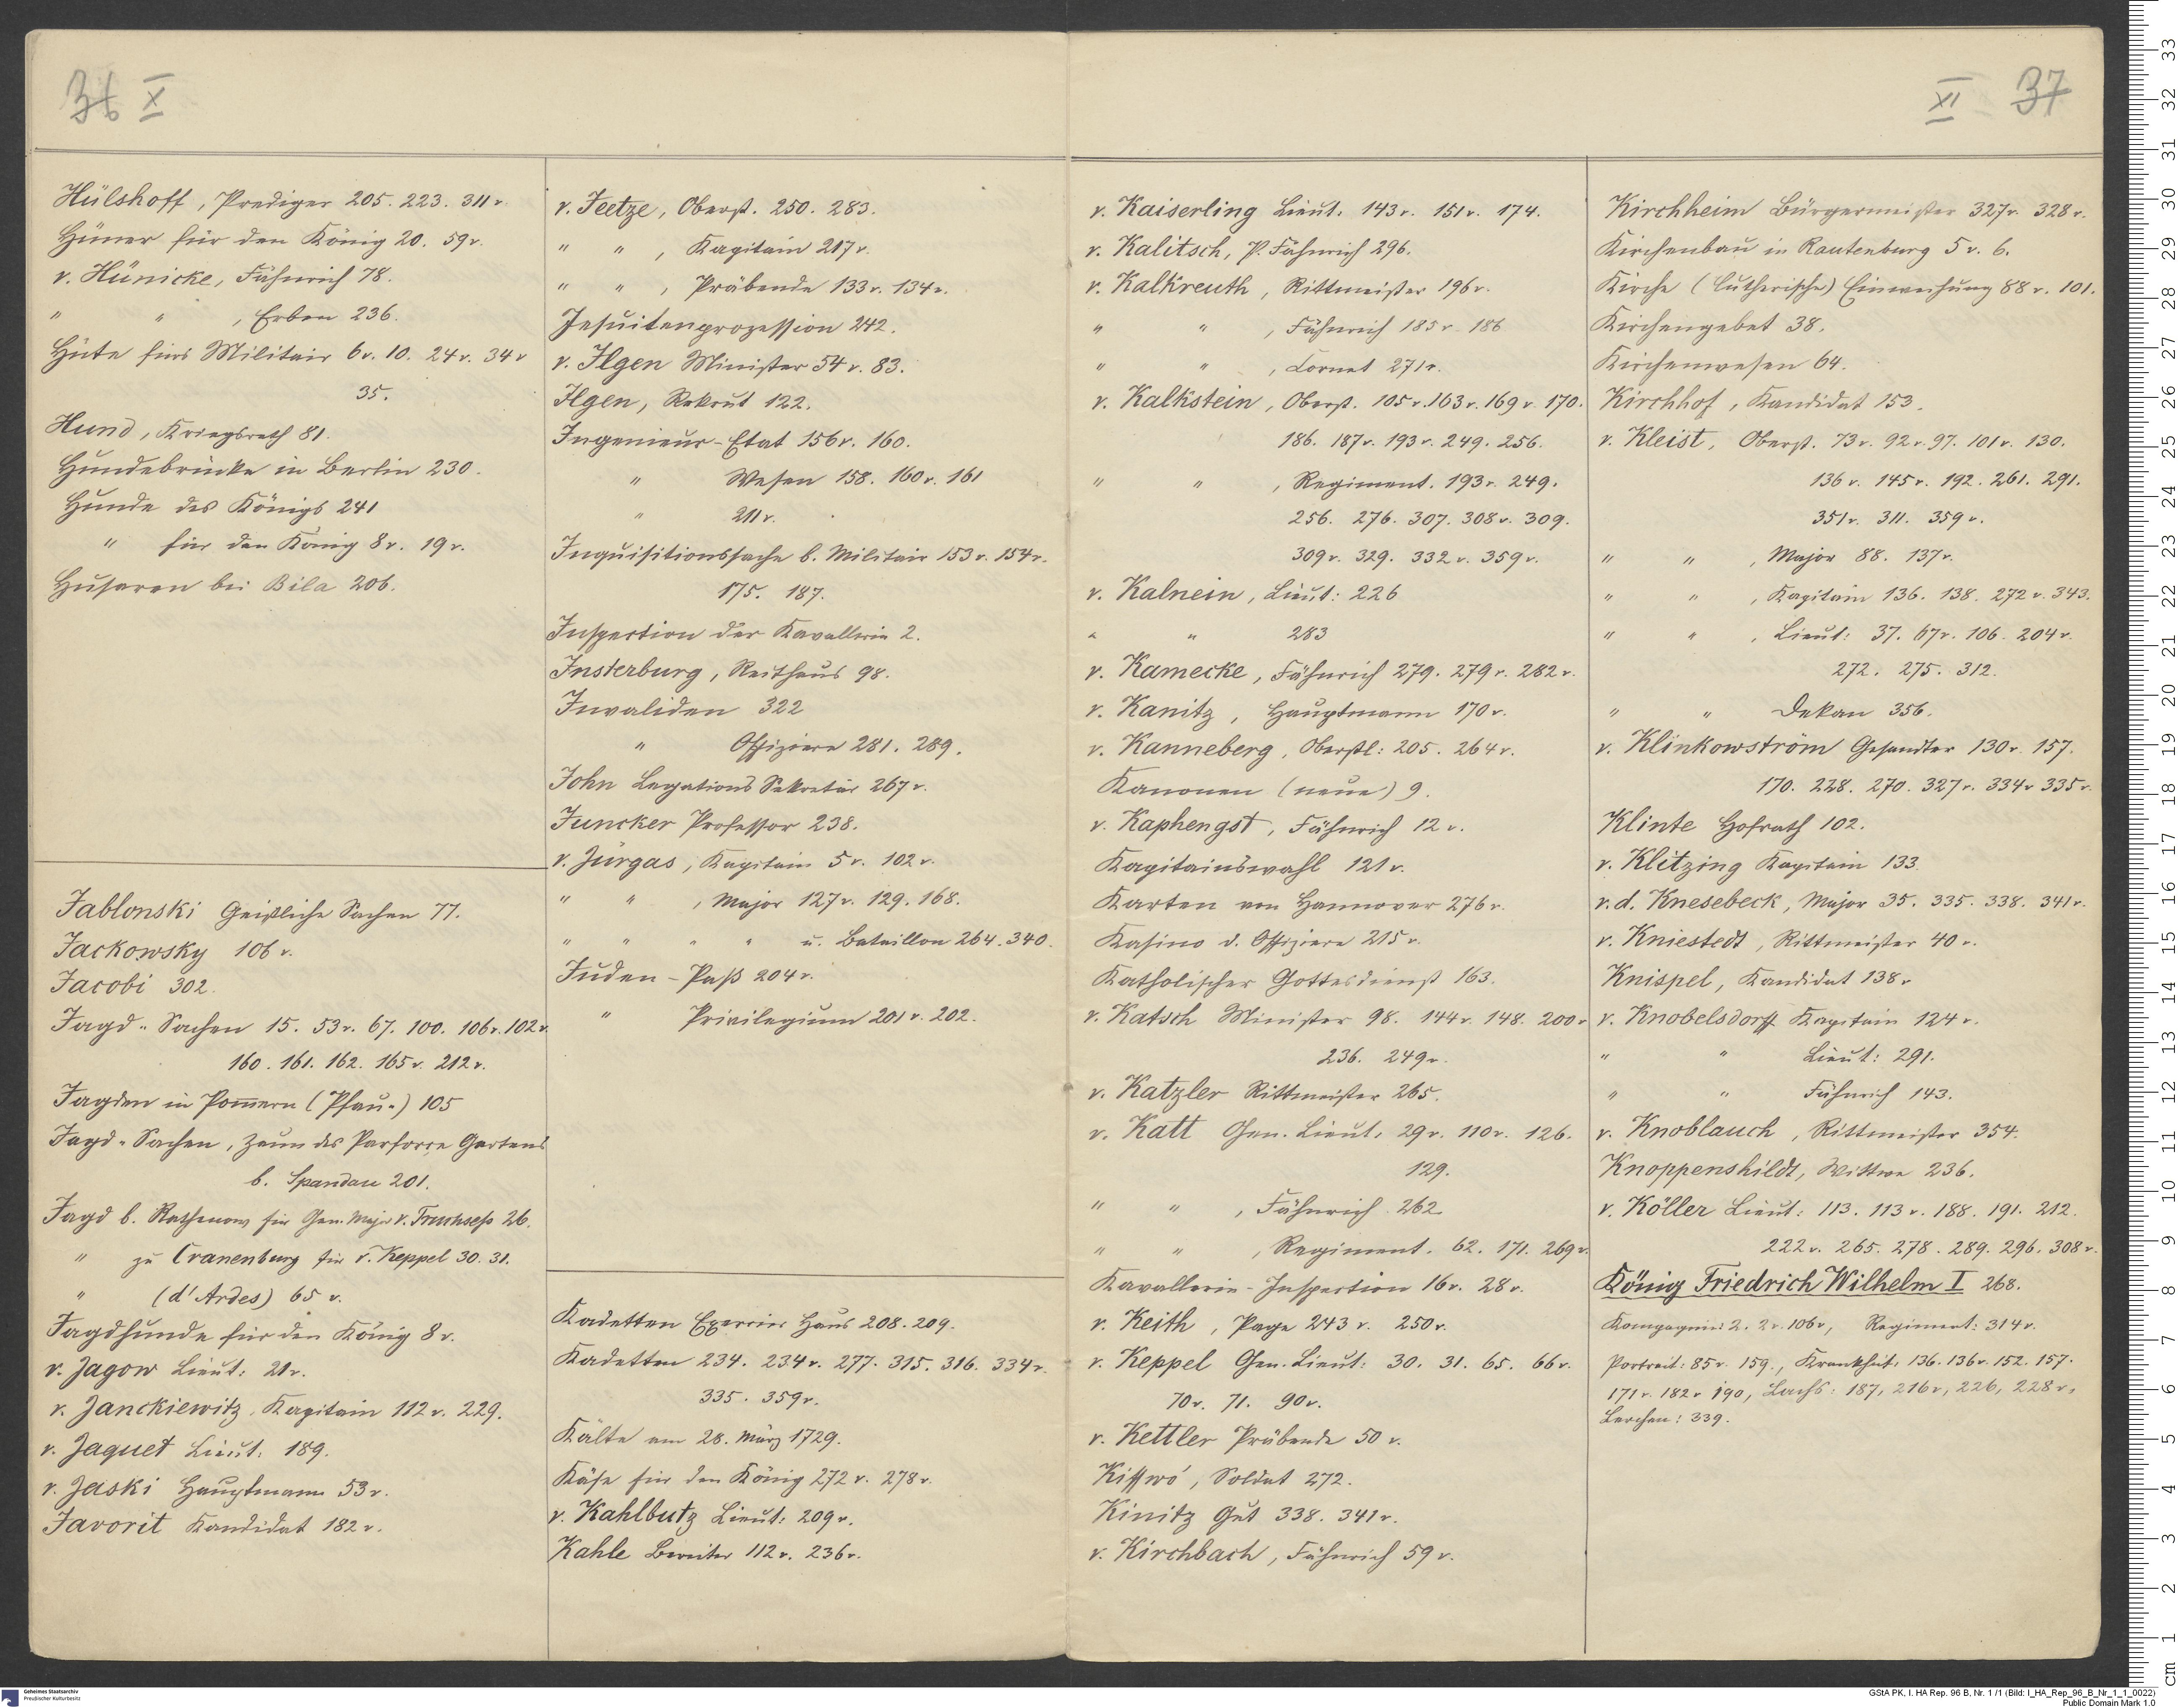 36 X
Hülshoff, Prediger 205. 223. 311 v.
Hüner für den König 20. 59 v.
v. Hünicke, Fähnrich 78.
" " , Erben 236.
Hüte fürs Militair 6 v. 10. 24 v. 34 v
35.
Hund, Kriegsrath 81.
Hundebrücke in Berlin 230.
Hunde des Königs 241
" für den König 8 v. 19 v.
Husaren bei Bila 206.
Jablonski Geistliche Sachen 77.
Jackowsky 106 v.
Jacobi 302.
Jagd-Sachen 15. 53 v. 67. 100. 106 v. 102 v.
160. 161. 162. 165 v. 212 v.
Jagden in Pommern (Pfau-) 105
Jagd-Sachen, Zaun des Parforce Gartens
b. Spandau 201.
Jagd b. Rathenow für Gen. Major v. Truchseß 26.
" zu Cranenburg für v. Keppel 30. 31.
" (d'Ardes) 65 v.
Jagdhunde für den König 8 v.
v. Jagow Lieut: 21 v.
v. Janckiewitz, Kapitain 112 v. 229.
v. Jaquet Lieut. 189.
v. Jaski Hauptmann 53 v.
Javorit Kandidat 182 v.
v. Jeetze, Oberst. 250. 283.
" " , Kapitain 217 v.
" " , Präbende 133 v. 134 v.
Jesuitenprozession 242.
v. Ilgen Minister 54 v. 83.
Ilgen, Rekrut 122.
Ingenieur-Etat 156 v. 160.
" Wesen 158. 160 v. 161
" 211 v.
Inquisitionssache b. Militair 153 v. 154 v.
175. 187.
Inspection der Kavallerie 2.
Insterburg, Reithaus 98.
Invaliden 322
" Offiziere 281. 289.
John Legations Sekretär 267 v.
Juncker Professor 238.
v. Jürgas, Kapitain 5 v. 102 v.
" " , Major 127 v. 129. 168.
" " " " u. Bataillon 264. 340.
Juden-Paß 204 v.
" Privilegium 201 v. 202.
Kadetten Exercier Haus 208. 209.
Kadetten 234. 234 v. 277. 315. 316. 334 v.
335. 359 v.
Kälte am 28. März 1729.
Käse für den König 272 v. 278 v.
v. Kahlbutz Lieut: 209 v.
Kahle Bereiter 112 v. 236 v.
XI 37
v. Kaiserling Lieut. 143 v. 151 v. 174.
v. Kalitsch, P. Fähnrich 296.
v. Kalkreuth, Rittmeister 196 v.
" " , Fähnrich 185 v. 186
" " , Cornet 271 v.
v. Kalkstein, Oberst. 105 v. 163 v. 169 v. 170.
186. 187 v. 193 v. 249. 256.
" " , Regiment. 193 v. 249.
256. 276. 307. 308 v. 309.
309 v. 329. 332 v. 359 v.
v. Kalnein, Lieut: 226
" " 283
v. Kamecke, Fähnrich 279. 279 v. 282 v.
v. Kanitz, Hauptmann 170 v.
v. Kanneberg, Oberstl: 205. 264 v.
Kanonen (neue) 9.
v. Kaphengst, Fähnrich 12 v.
Kapitainswahl 121 v.
Karten von Hannover 276 v.
Kasino d. Offiziere 215 v.
Katholischer Gottesdienst 163.
v. Katsch Minister 98. 144 v. 148. 200 v
236. 249 v.
v. Katzler Rittmeister 265.
v. Katt Gen. Lieut. 29 v. 110 v. 126.
129.
" " , Fähnrich 262
" " , Regiment. 62. 171. 269 v.
Kavallerie-Inspection 16 v. 28 v.
v. Keith, Page 243 v. 250 v.
v. Keppel Gen. Lieut: 30. 31. 65. 66 v.
70 v. 71. 90 v.
v. Kettler Präbende 50 v.
Kisswo, Soldat 272.
Kinitz Gut 338. 341 v.
v. Kirchbach, Fähnrich 59 v.
Kirchheim Bürgermeister 327 v. 328 v.
Kirchenbau in Rautenburg 5 v. 6.
Kirche (lutherische) Einweihung 88 v. 101.
Kirchengebet 38.
Kirchenwesen 64.
Kirchhof, Kandidat 153.
v. Kleist, Oberst. 73 v. 92 v. 97. 101 v. 130.
136 v. 145 v. 192. 261. 291.
351 v. 311. 359 v.
" " , Major 88. 137 v.
" " , Kapitain 136. 138. 272 v. 343.
" " , Lieut: 37. 67 v. 106. 204 v.
272. 275. 312.
" " Dekan 356.
v. Klinkowström Gesandter 130 v. 157.
170. 228. 270. 327 v. 334 v 335 v.
Klinte Hofrath 102.
v. Klitzing Kapitain 133
v. d. Knesebeck, Major 35. 335. 338. 341 v.
v. Kniestedt, Rittmeister 40 v.
Knispel, Kandidat 138 v
v. Knobelsdorff Kapitain 124 v.
" " Lieut: 291.
" " Fähnrich 143.
v. Knoblauch, Rittmeister 354.
Knoppenshildt, Wittwe 236.
v. Köller Lieut: 113. 113 v. 188. 191. 212.
222 v. 265. 278. 289. 296. 308 v.
König Friedrich Wilhelm I 268.
Kompagnie: 2. 2 v. 106 v, Regiment: 314 v.
Portrait: 85 v. 159., Krankheit: 136. 136 v. 152. 157.
171 v. 182 v 190, Lachs: 187, 216 v, 226, 228 v,
Lerchen: 339.
Geheimes Staatsarchiv
Preußischer Kulturbesitz
GStA PK, I. HA Rep. 96 B, Nr. 1 /1 (Bild: I_HA_Rep_96_B_Nr_1_1_0022)
Public Domain Mark 1.0
33
32
31
30
29
28
27
26
25
24
23
22
21
20
19
18
17
16
15
14
13
12
11
10
9
8
7
6
5
4
3
2
1
cm